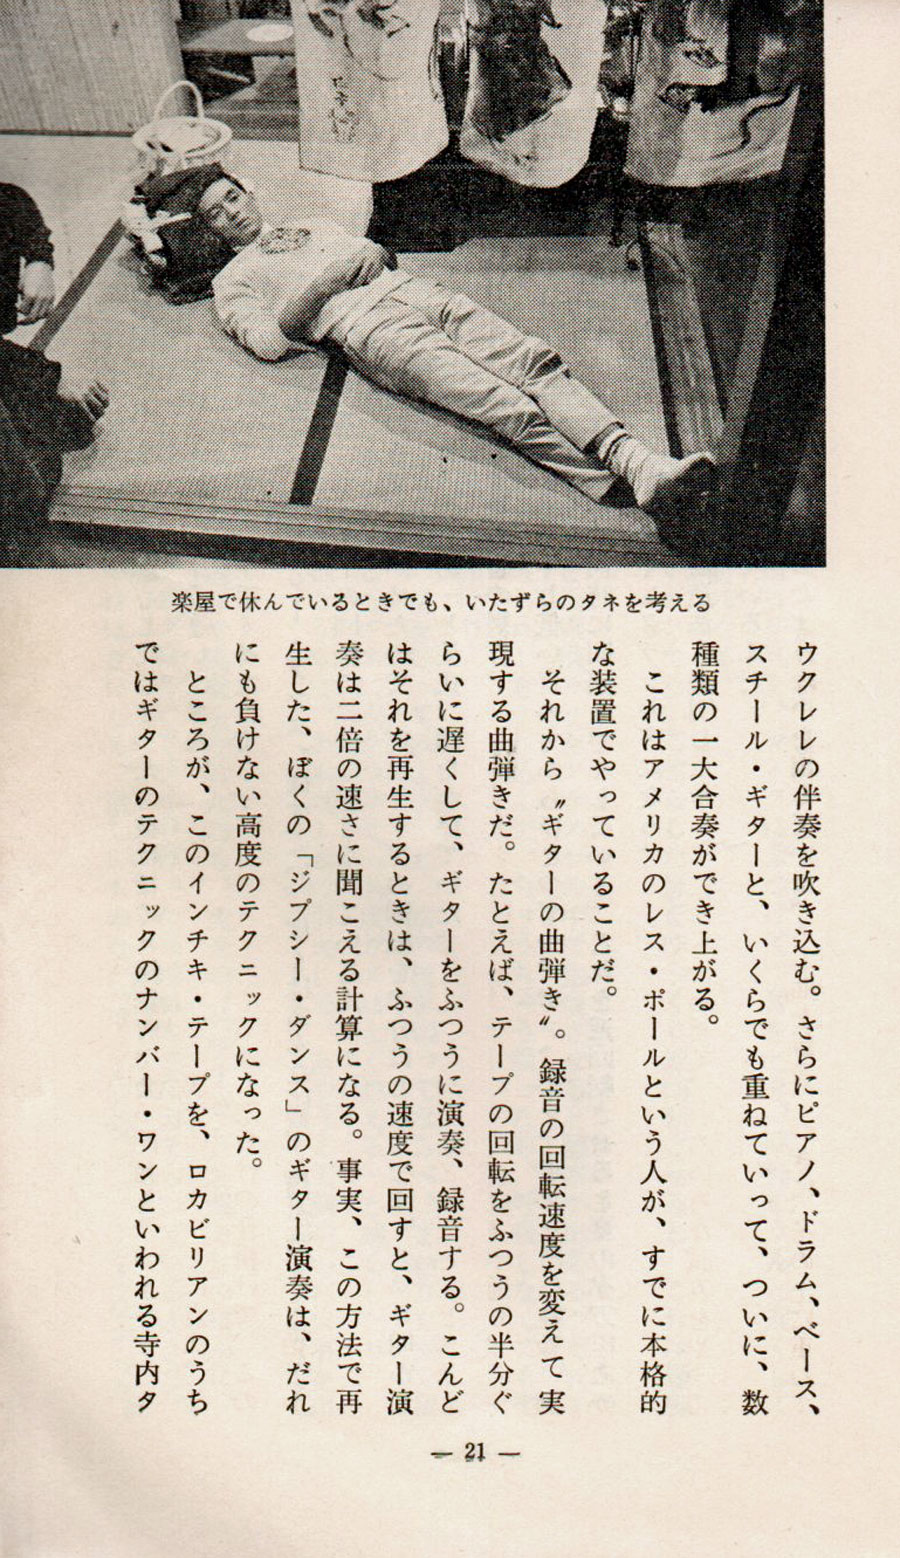 楽屋で休んでいるときでも、いたずらのタネを考える
ウクレレの伴奏を吹き込む。さらにピアノ、ドラム、ベース、
スチール・ギターと、いくらでも重ねていって、ついに、数
種類の一大合奏ができ上がる。
これはアメリカのレス・ポールという人が、すでに本格的
な装置でやっていることだ。
それから〝ギターの曲弾き〟。録音の回転速度を変えて実
現する曲弾きだ。たとえば、テープの回転をふつうの半分ぐ
らいに遅くして、ギターをふつうに演奏、録音する。こんど
はそれを再生するときは、ふつうの速度で回すと、ギター演
奏は二倍の速さに聞こえる計算になる。事実、この方法で再
生した、ぼくの「ジプシー・ダンス」のギター演奏は、だれ
にも負けない高度のテクニックになった。
ところが、このインチキ・テープを、ロカビリアンのうち
ではギターのテクニックのナンバー・ワンといわれる寺内タ
— 21 —